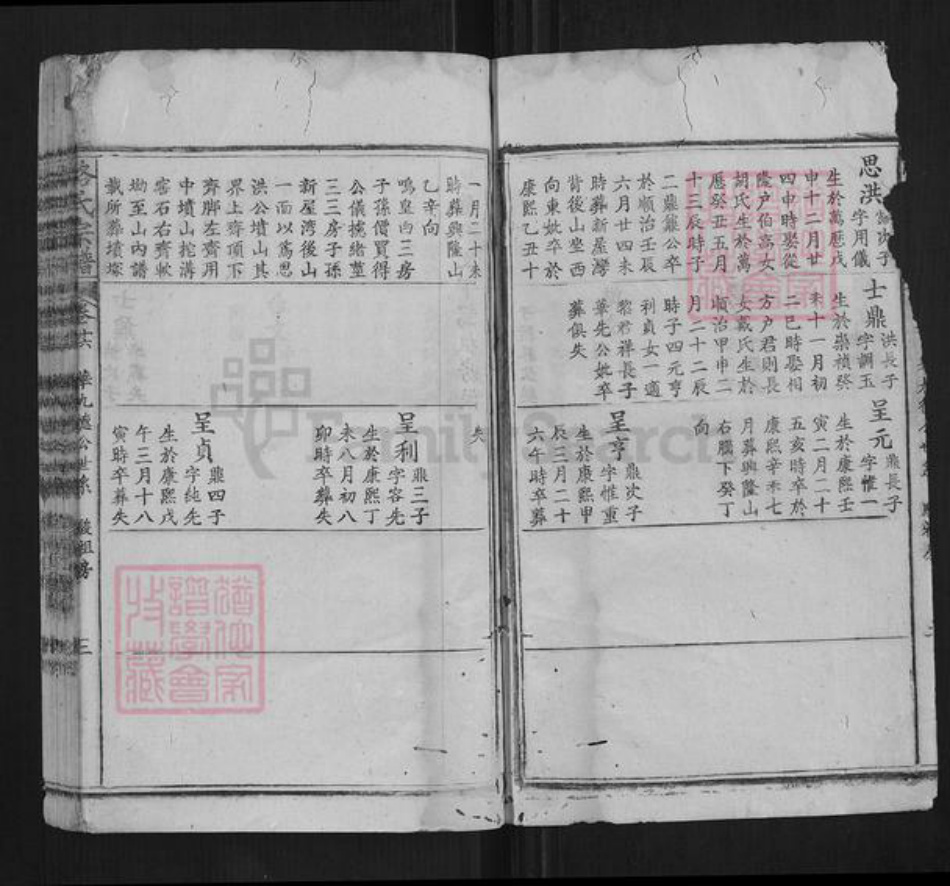 思洪
次子
字用儀
生於萬歷戊
申十二月廿
四申時娶從
隆户伯高女
胡氏生於萬
歷癸丑五月
十三辰時子
二鼎鼐公卒
於順治壬辰
六月廿四未
時葬新屋灣
背後山坐西
向東妣卒於
康熙乙丑十
士鼎
洪長子
字調玉
生於崇禎癸
未十一月初
二巳時娶相
方户君則長
女戴氏生於
順治甲申二
月二十二辰
時子四元亨
利貞女一適
黎君祥長子
華先公妣卒
葬俱失
呈元
鼎長子
字惟一
生於康熙壬
寅二月二十
五亥時卒於
康熙辛未七
月葬興隆山
右臈下癸丁
向
呈亨
鼎次子
字惟重
生於康熙甲
辰三月二十
六午時卒葬
一月二十未
時葬興隆山
乙辛向
鳴皇向三房
子孫價買得
公儀攬緒堇
三三房子孫
新屋灣後山
一面以爲思
洪公墳山其
界上齊頂下
齊脚左齊用
中墳山挖溝
窖石右齊軟
坳至山內譜
載所葬墳塚
失
呈利
鼎三子
字容先
生於康熙丁
未八月初八
卯時卒葬失
呈貞
鼎四子
字純先
生於康熙戊
午三月十八
寅時卒葬失
氏宗譜
卷廿六
華九處公世系
三
FamilySearch